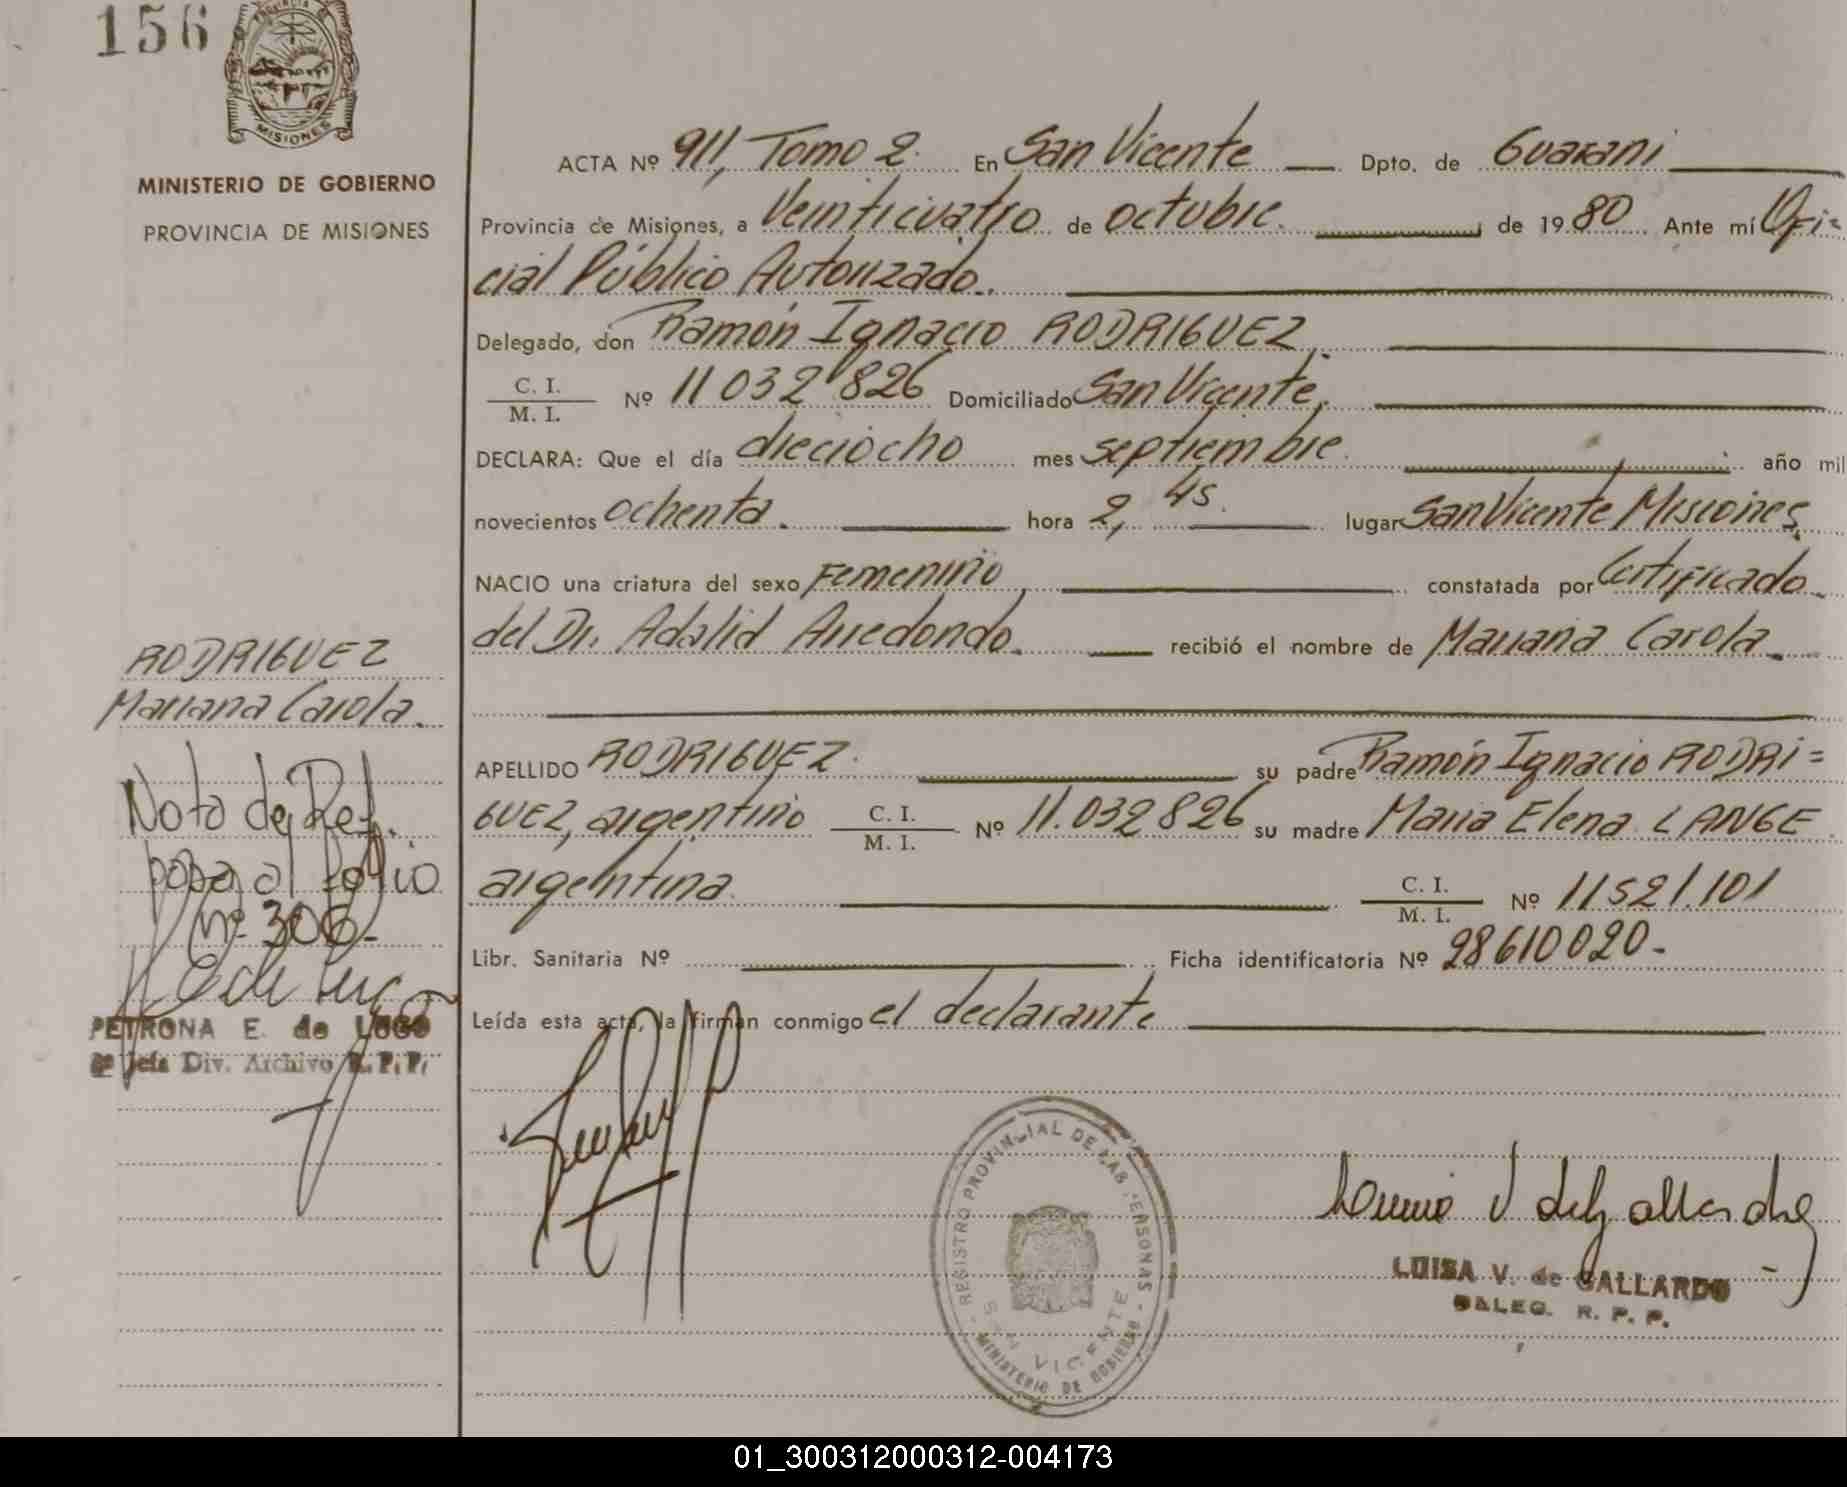 156
PROVINCIA DE
MISIONES
MINISTERIO DE GOBIERNO
PROVINCIA DE MISIONES
RODRIGUEZ
Mariana Carola.
Nota de Ref.
pasa al folio
nº 306-
PETRONA E. de LUGO
Jefa Div. Archivo R. P. P.
ACTA Nº 911, Tomo 2. En San Vicente Dpto. de Guarani
Provincia de Misiones, a Veinticuatro de octubre. de 1980 Ante mí Ofi-
cial Público Autorizado.
Delegado, don Ramón Ignacio RODRIGUEZ,
C. I. / M. I. Nº 11 032 826 Domiciliado San Vicente,
DECLARA: Que el día dieciocho mes septiembre. año mil
novecientos ochenta. hora 2, 45. lugar San Vicente Misiones,
NACIO una criatura del sexo Femenino, constatada por Certificado
del Dr. Adalid Arredondo. recibió el nombre de Mariana Carola.
APELLIDO RODRIGUEZ. su padre Ramón Ignacio RODRI=
GUEZ, argentino C. I. / M. I. Nº 11.032826 su madre Maria Elena LANGE
argentina. C. I. / M. I. Nº 11521.101
Libr. Sanitaria Nº Ficha identificatoria Nº 28610020-
Leída esta acta, la firman conmigo el declarante
REGISTRO PROVINCIAL DE LAS PERSONAS
SAN VICENTE
MINISTERIO DE GOBIERNO
LUISA V. de GALLARDO
DALEG. R. P. P.
01_300312000312-004173